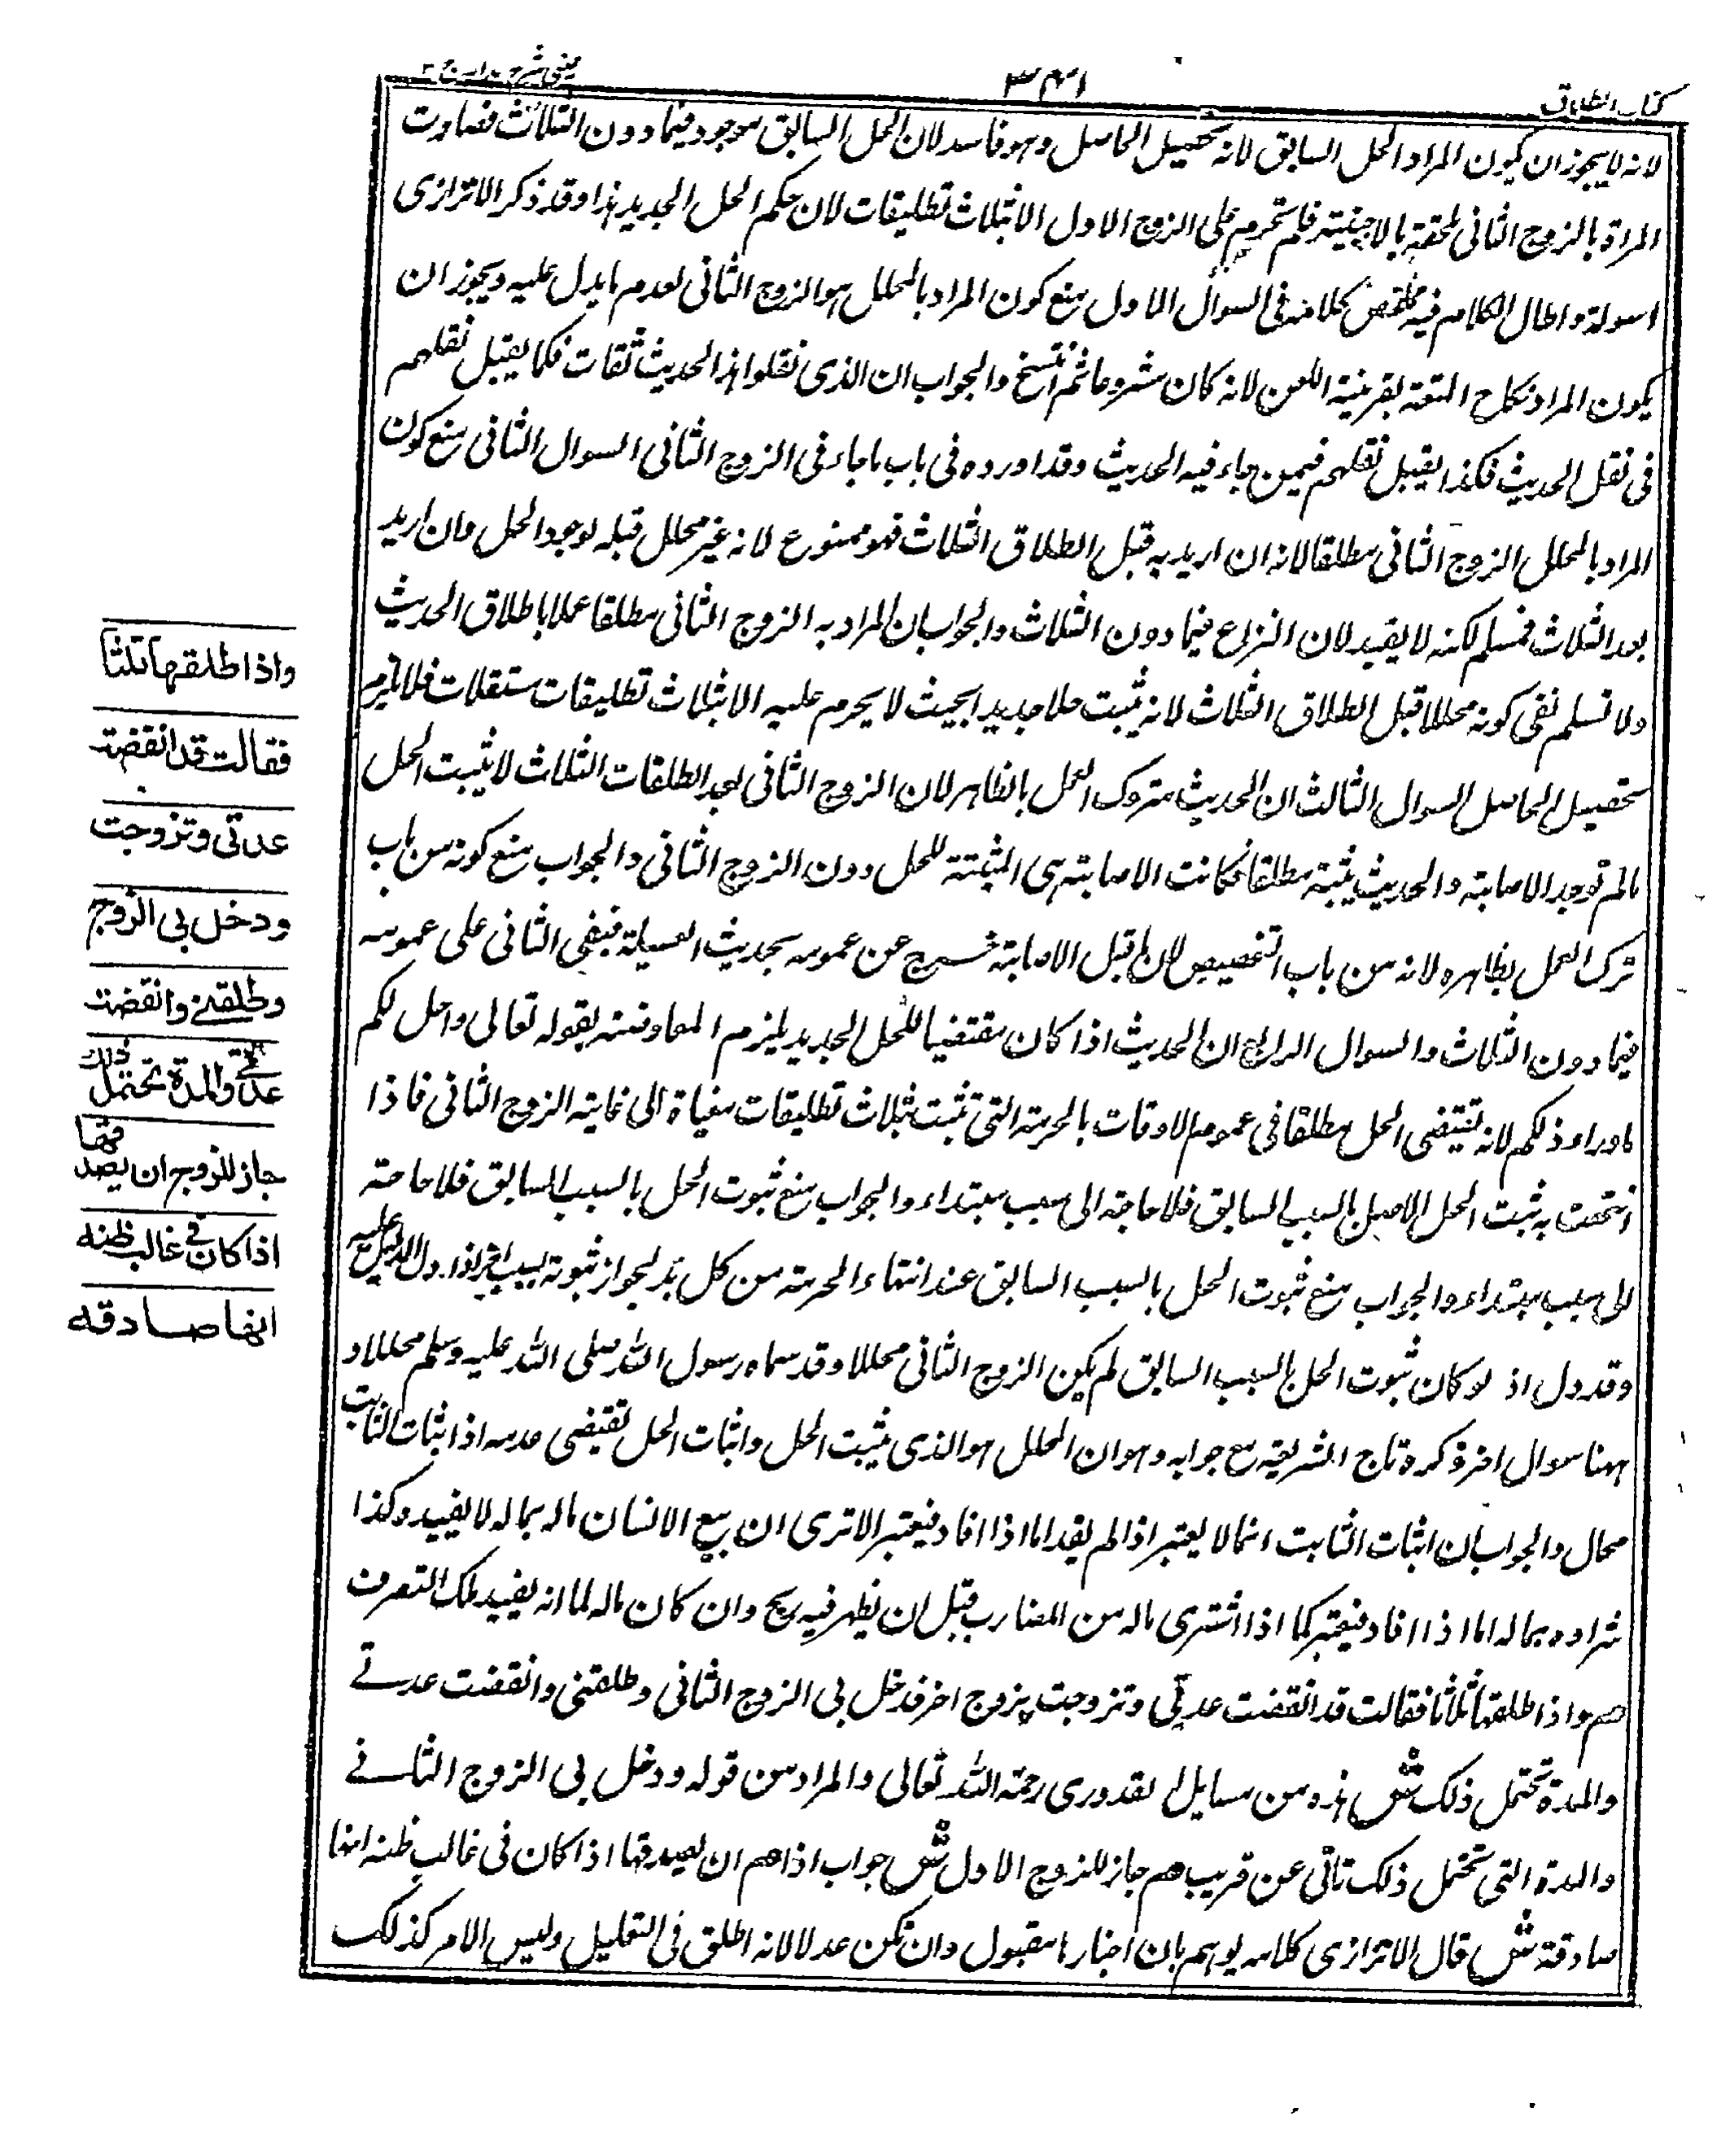 كتاب الطلاق
٣٤١
عينى شرح هداية ج ٢
لانه لا يجوز ان يكون المراد الحل السابق لانه تحصيل الحاصل وهو فاسد لان الحل السابق موجود فيما دون الثلاث فصارت
المراة بالزوج الثانى ملحقة بالاجنبية فلم تحرم على الزوج الاول الا بثلاث تطليقات لان حكم الحل الجديد هذا وقد ذكر الاترازى
اسولة واطال الكلام فيه ملخص كلامه فى السوال الاول منع كون المراد بالمحلل هو الزوج الثانى لعدم ما يدل عليه ويجوز ان
يكون المراد نكاح المتعة بقرينة اللعن لانه كان مشروعا ثم انتسخ والجواب ان الذى نقلوا هذا الحديث ثقات فكما يقبل نقلهم
فى نقل الحديث فكذا يقبل نقلهم فيمن جاء فيه الحديث وقد اورده فى باب ما جاء فى الزوج الثانى السوال الثانى منع كون
المراد بالمحلل الزوج الثانى مطلقا لانه ان اريد به قبل الطلاق الثلاث فهو ممنوع لانه غير محلل قبله لوجود الحل وان اريد
بعد الثلاث فمسلم لكنه لا يفيد لان النزاع فيما دون الثلاث والجواب ان المراد به الزوج الثانى مطلقا عملا باطلاق الحديث
ولا نسلم نفى كونه محللا قبل الطلاق الثلاث لانه يثبت حلا جديدا بحيث لا يحرم عليه الا بثلاث تطليقات مستقلات فلا يلزم
تحصيل الحاصل السوال الثالث ان الحديث متروك العمل بالظاهر لان الزوج الثانى بعد الطلقات الثلاث لا يثبت الحل
مالم توجد الاصابة والحديث يثبته مطلقا فكانت الاصابة هى المثبتة للحل دون الزوج الثانى والجواب منع كونه من باب
ترك العمل بظاهره لانه من باب التخصيص لان ما قبل الاصابة خرج عن عمومه بحديث العسيلة فبقى الثانى على عمومه
فيما دون الثلاث والسوال الرابع ان الحديث اذا كان مقتضيا للحل الجديد يلزم المعاوضة بقوله تعالى واحل لكم
ما وراء ذلكم لانه تقتضى الحل مطلقا فى عموم الاوقات بالحرمة التى تثبت بثلاث تطليقات مغياة الى غاية الزوج الثانى فاذا
انتهت به ثبت الحل الاصلى بالسبب السابق فلا حاجة الى سبب مبتداء والجواب منع ثبوت الحل بالسبب السابق فلا حاجة
الى سبب مبتداء والجواب منع ثبوت الحل بالسبب السابق عند انتهاء الحرمة من كل بد لجواز ثبوته بسبب اخر اذا دل الدليل عليه
وقد دل اذ لو كان ثبوت الحل بالسبب السابق لم يكن الزوج الثانى محللا وقد سماه رسول الله صلى الله عليه وسلم محللا و
ههنا سوال اخر ذكره تاج الشريعة مع جوابه وهو ان المحلل هو الذى يثبت الحل واثبات الحل تقتضى عدمه اذ اثبات الثابت
محال والجواب ان اثبات الثابت انما لا يعتبر اذا لم يفد اما اذا افاد فيعتبر الا ترى ان بيع الانسان ماله بماله لا يفيد وكذا
شراوه بماله اما اذا افاد فيعتبر كما اذا اشترى ماله من المضارب قبل ان يظهر فيه ربح وان كان ماله لما انه يفيد ملك التصرف
هم واذا طلقها ثلاثا فقالت قد انقضت عدتى وتزوجت بزوج اخر فدخل بى الزوج الثانى وطلقنى وانقضت عدتے
والمدة تحتمل ذلك ش هذه من مسايل القدورى رحمة الله تعالى والمراد من قوله ودخل بى الزوج الثانے
والمدة التى تحتمل ذلك تاتى عن قريب هم جاز للزوج الاول ش جواب اذا هم ان يصدقها اذا كان فى غالب ظنه انها
صادقة ش قال الاترازى كلامه يوهم بان اخبارها مقبول وان تكن عدلا لانه اطلق فى التعليل وليس الامر كذلك
واذا طلقها ثلثا
فقالت قد انقضت
عدتى وتزوجت
ودخل بى الزوج
وطلقنے وانقضت
عدتے والمدة تحتمل ذلك
جاز للزوج ان يصدقها
اذا كان فے غالب ظنه
انها صادقه